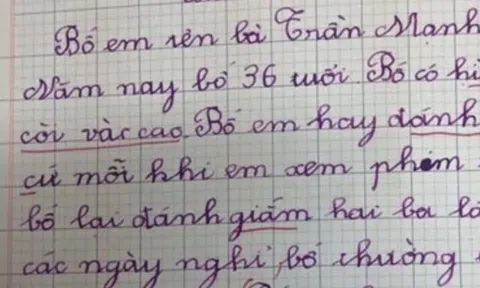 Bố em tên là Trần Mạnh
Năm nay bố 36 tuổi Bố có hì
còi vàc cao. Bố em hay đánh
cứ mỗi khi em xem phim
bố lại đánh giắm hai ba lầ
các ngày nghỉ, bố thường